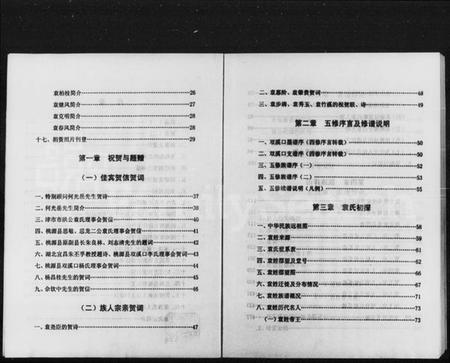 袁柏校简介 26
袁继凤简介 27
袁克明简介 28
袁春凤简介 28
十七、捐资照片刊登 29
第一章 祝贺与题赠
(一)佳宾贺信贺词
一、特别顾问何光岳先生贺诗 37
二、何光岳先生简介 38
三、津市市袁公袁氏理事会贺信 40
四、桃源县 理事会贺词 41
五、桃源县原副县长朱良林、刘志清先生的题词 42
六、湖北宜昌朱丕亨教授题诗、桃源县双溪口李氏理事会贺词 43
七、桃源县双溪口杨氏理事会贺词 44
八、杨昌桂先生的贺词 45
九、佘钦中先生的贺信 46
(二)族人宗亲贺词
一、袁尧臣的贺诗 47
二、袁惠阶、袁肇贵贺词 48
三、袁步满、袁秀玉、袁竹溪的祝贺联、诗 49
第二章 五修序言及修谱说明
一、双溪口墓谱序(四修序言转载) 50
二、双溪口支谱序(四修序言转载) 50
三、五修族谱序(一) 52
四、五修族谱序(二) 54
五、五修续谱说明(凡例) 55
第三章 袁氏初探
一、中华民族远祖图 58
二、袁姓来源 59
三、袁氏世系表 61
四、袁姓郡望及堂号 62
五、袁姓郡望图 66
六、袁姓迁徙及分布情况 67
七、袁姓族谱概况 71
八、袁姓历代名人 73
(一)袁姓帝王 73